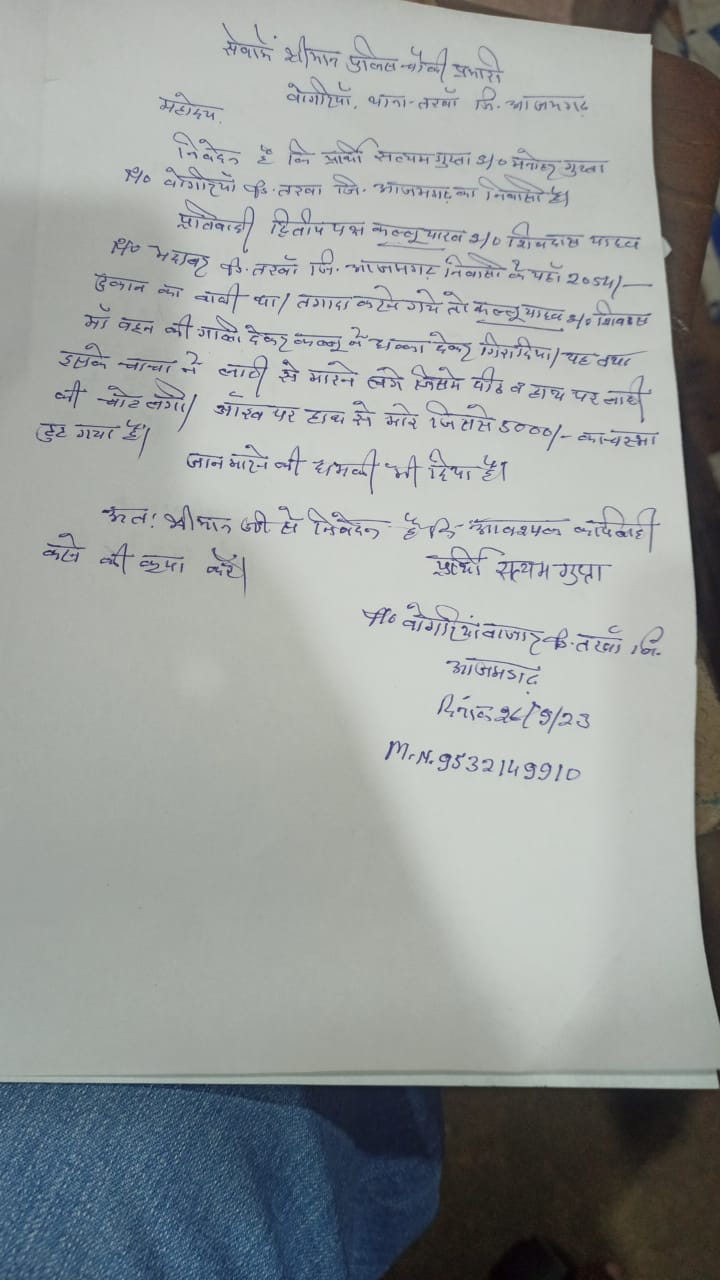 सेवामें श्रीमान पुलिस चौकी प्रभारी
बोगरियाँ, थाना-तरवाँ जि. आजमगढ़
महोदय,
निवेदन है कि प्रार्थी सत्यम गुप्ता S/o मनोहर गुप्ता
R/o बोगरियाँ तरवा जि. आजमगढ़ का निवासी है।
प्रतिवादी द्वितीय पक्ष कल्लू यादव S/o शिवदास यादव
R/o तरवाँ जि. आजमगढ़ निवासी के यहाँ 2054/-
दुकान का बाकी था। तगादा करने गये तो कल्लू यादव S/o शिवदास
माँ बहन की गाली देकर कल्लू ने धक्का देकर गिरा दिया। यह तथा
इसके चाचा ने लाठी से मारने लगे जिसमे पीठ व हाथ पर लाठी
की चोट लगी। आँख पर हाथ से मारे जिससे 5000/- का चस्मा
टुट गया है।
जान मारने की धमकी भी दिया है।
अतः श्रीमान जी से निवेदन है कि आवश्यक कार्यवाही
करने की कृपा करें।
प्रार्थी सत्यम गुप्ता
R/o बोगरियां बाजार तरवाँ जि.
आजमगढ़
दिनांक 26/9/23
M.N. 9532149910